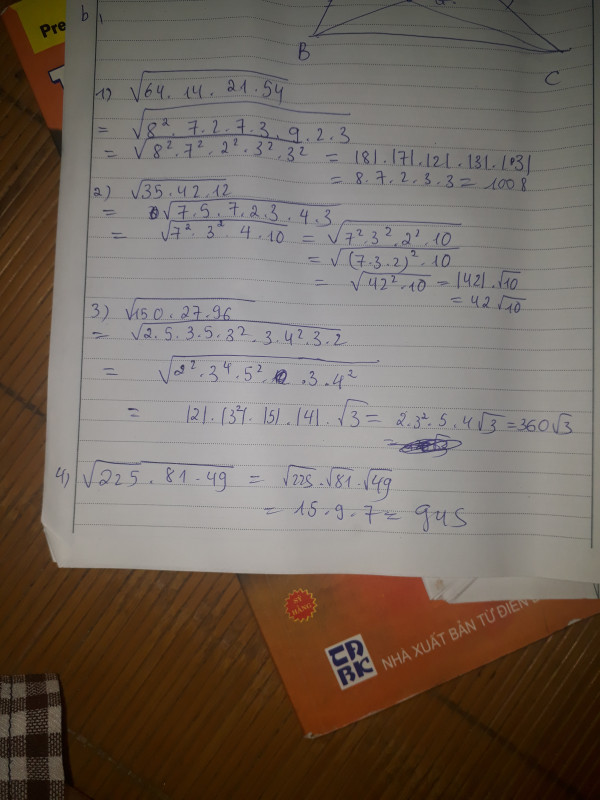 Pre
b,
B
C
1) √64.14.21.54
= √8².7.2.7.3.9.2.3
= √8².7².2².3².3² = |8|.|7|.|2|.|3|.|3|
= 8.7.2.3.3 = 1008
2) √35.42.12
= √7.5.7.2.3.4.3
= √7².3².4.10 = √7².3².2².10
= √(7.3.2)².10
= √42².10 = |42|.√10
= 42√10
3) √150.27.96
= √2.5.3.5.3².3.4².3.2
= √2².3⁴.5².3.4²
= |2|.|3²|.|5|.|4|.√3 = 2.3².5.4√3 = 360√3
4) √225.81.49 = √225.√81.√49
= 15.9.7 = 945
SÊ HÀNG
TĐ BK
NHÀ XUẤT BẢN TỪ ĐIỂN